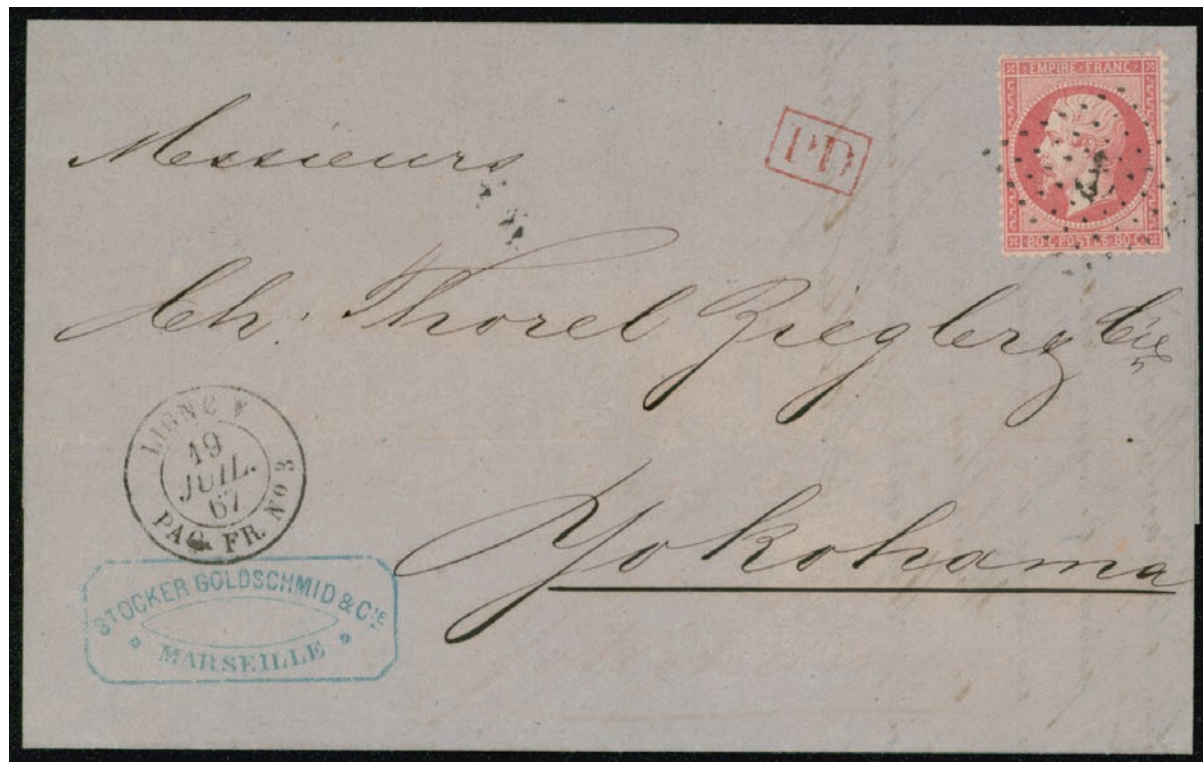 EMPIRE·FRANC·
80·C·POSTES·80·Cᵐᵉˢ
PD
Messieurs
Ch. Thorel Ziegler & Cie
Yokohama
LIGNE V
19
JUIL.
67
PAQ. FR. No 3
STOCKER GOLDSCHMID & Cᴵᴱ
MARSEILLE